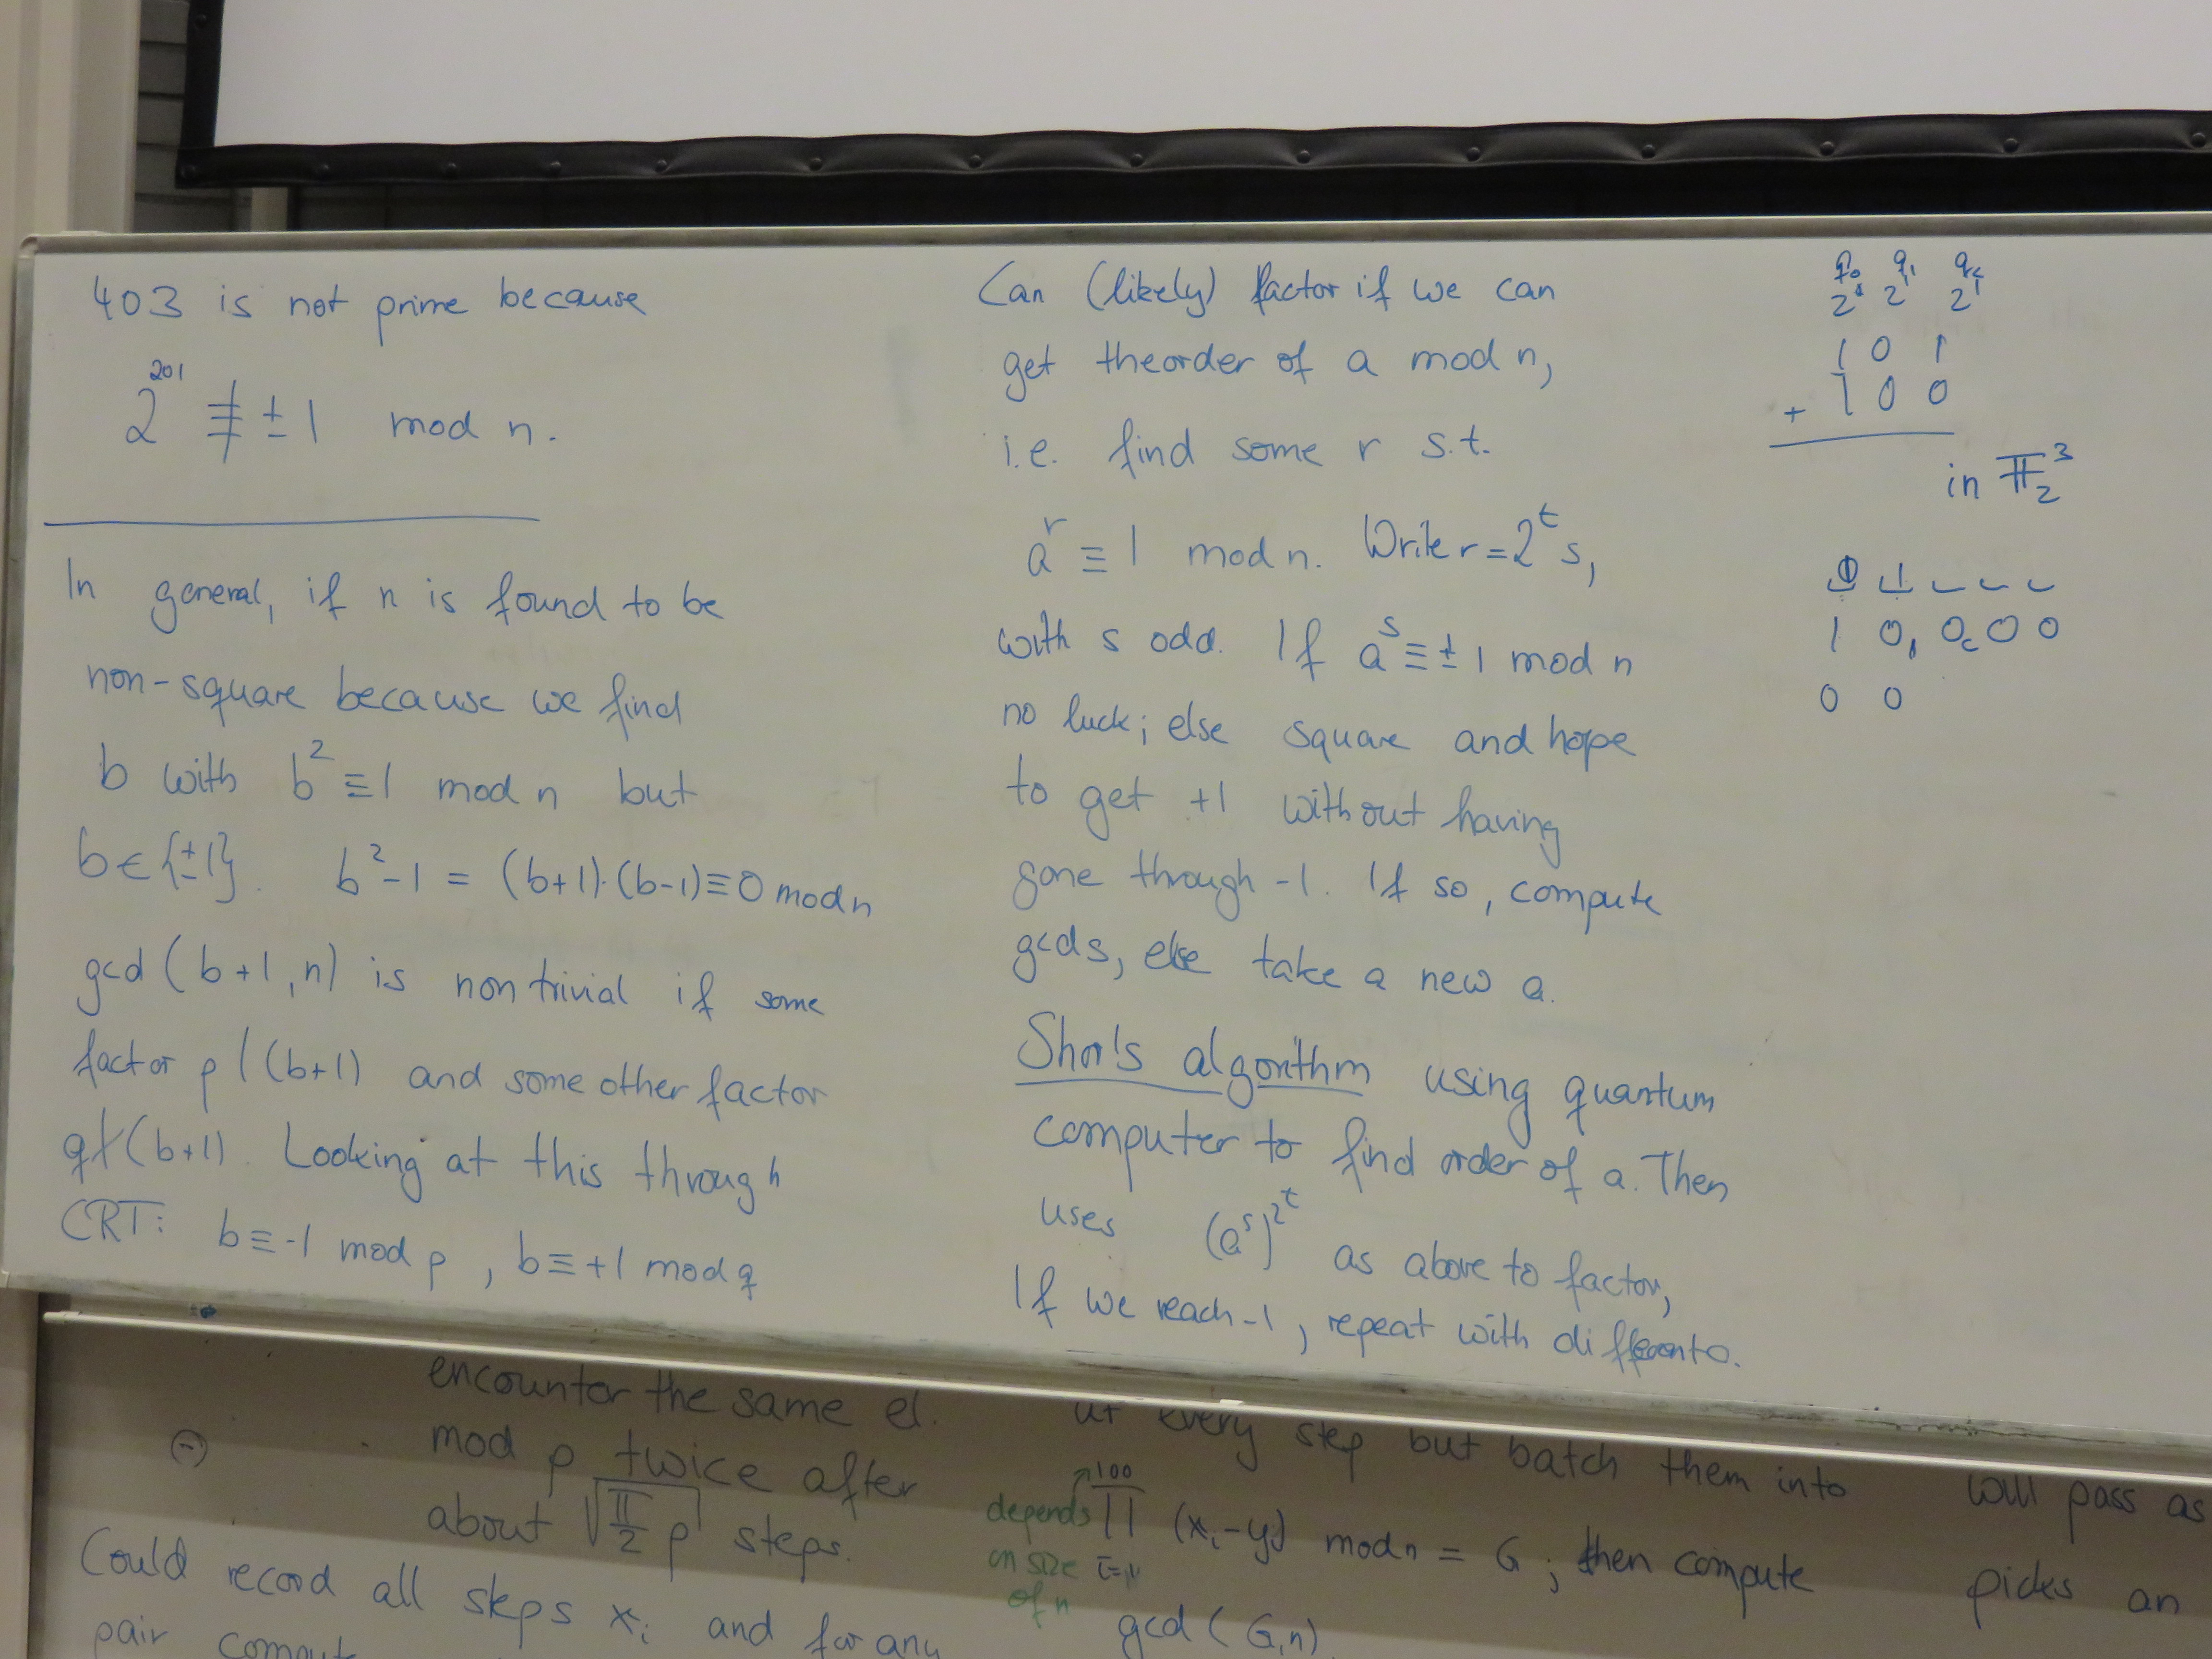 403 is not prime because
2^201 ≢ ±1 mod n.
In general, if n is found to be
non-square because we find
b with b² ≡ 1 mod n but
b ∈ {±1}. b²-1 = (b+1)·(b-1) ≡ 0 mod n
gcd (b+1, n) is nontrivial if some
factor p | (b+1) and some other factor
q ∤ (b+1). Looking at this through
CRT: b ≡ -1 mod p, b ≡ +1 mod q
Can (likely) factor if we can
get the order of a mod n,
i.e. find some r s.t.
a^r ≡ 1 mod n. Write r = 2^t s,
with s odd. If a^s ≡ ±1 mod n
no luck; else square and hope
to get +1 without having
gone through -1. If so, compute
gcds, else take a new a.
Shor's algorithm using quantum
computer to find order of a. Then
uses (a^s)^2^t as above to factor,
If we reach -1, repeat with different a.
1 0 1
+ 1 0 0
in 𝔽₂³
1 0, 0 0 0
0 0
encounter the same el.
mod p twice after
about √(π/2 p) steps.
Could record all steps x_i and for any
pair
at every step but batch them into
depends on size of n
100
∏ (x_i - y_i) mod n = G ; then compute
gcd (G, n)
will pass as
picks an